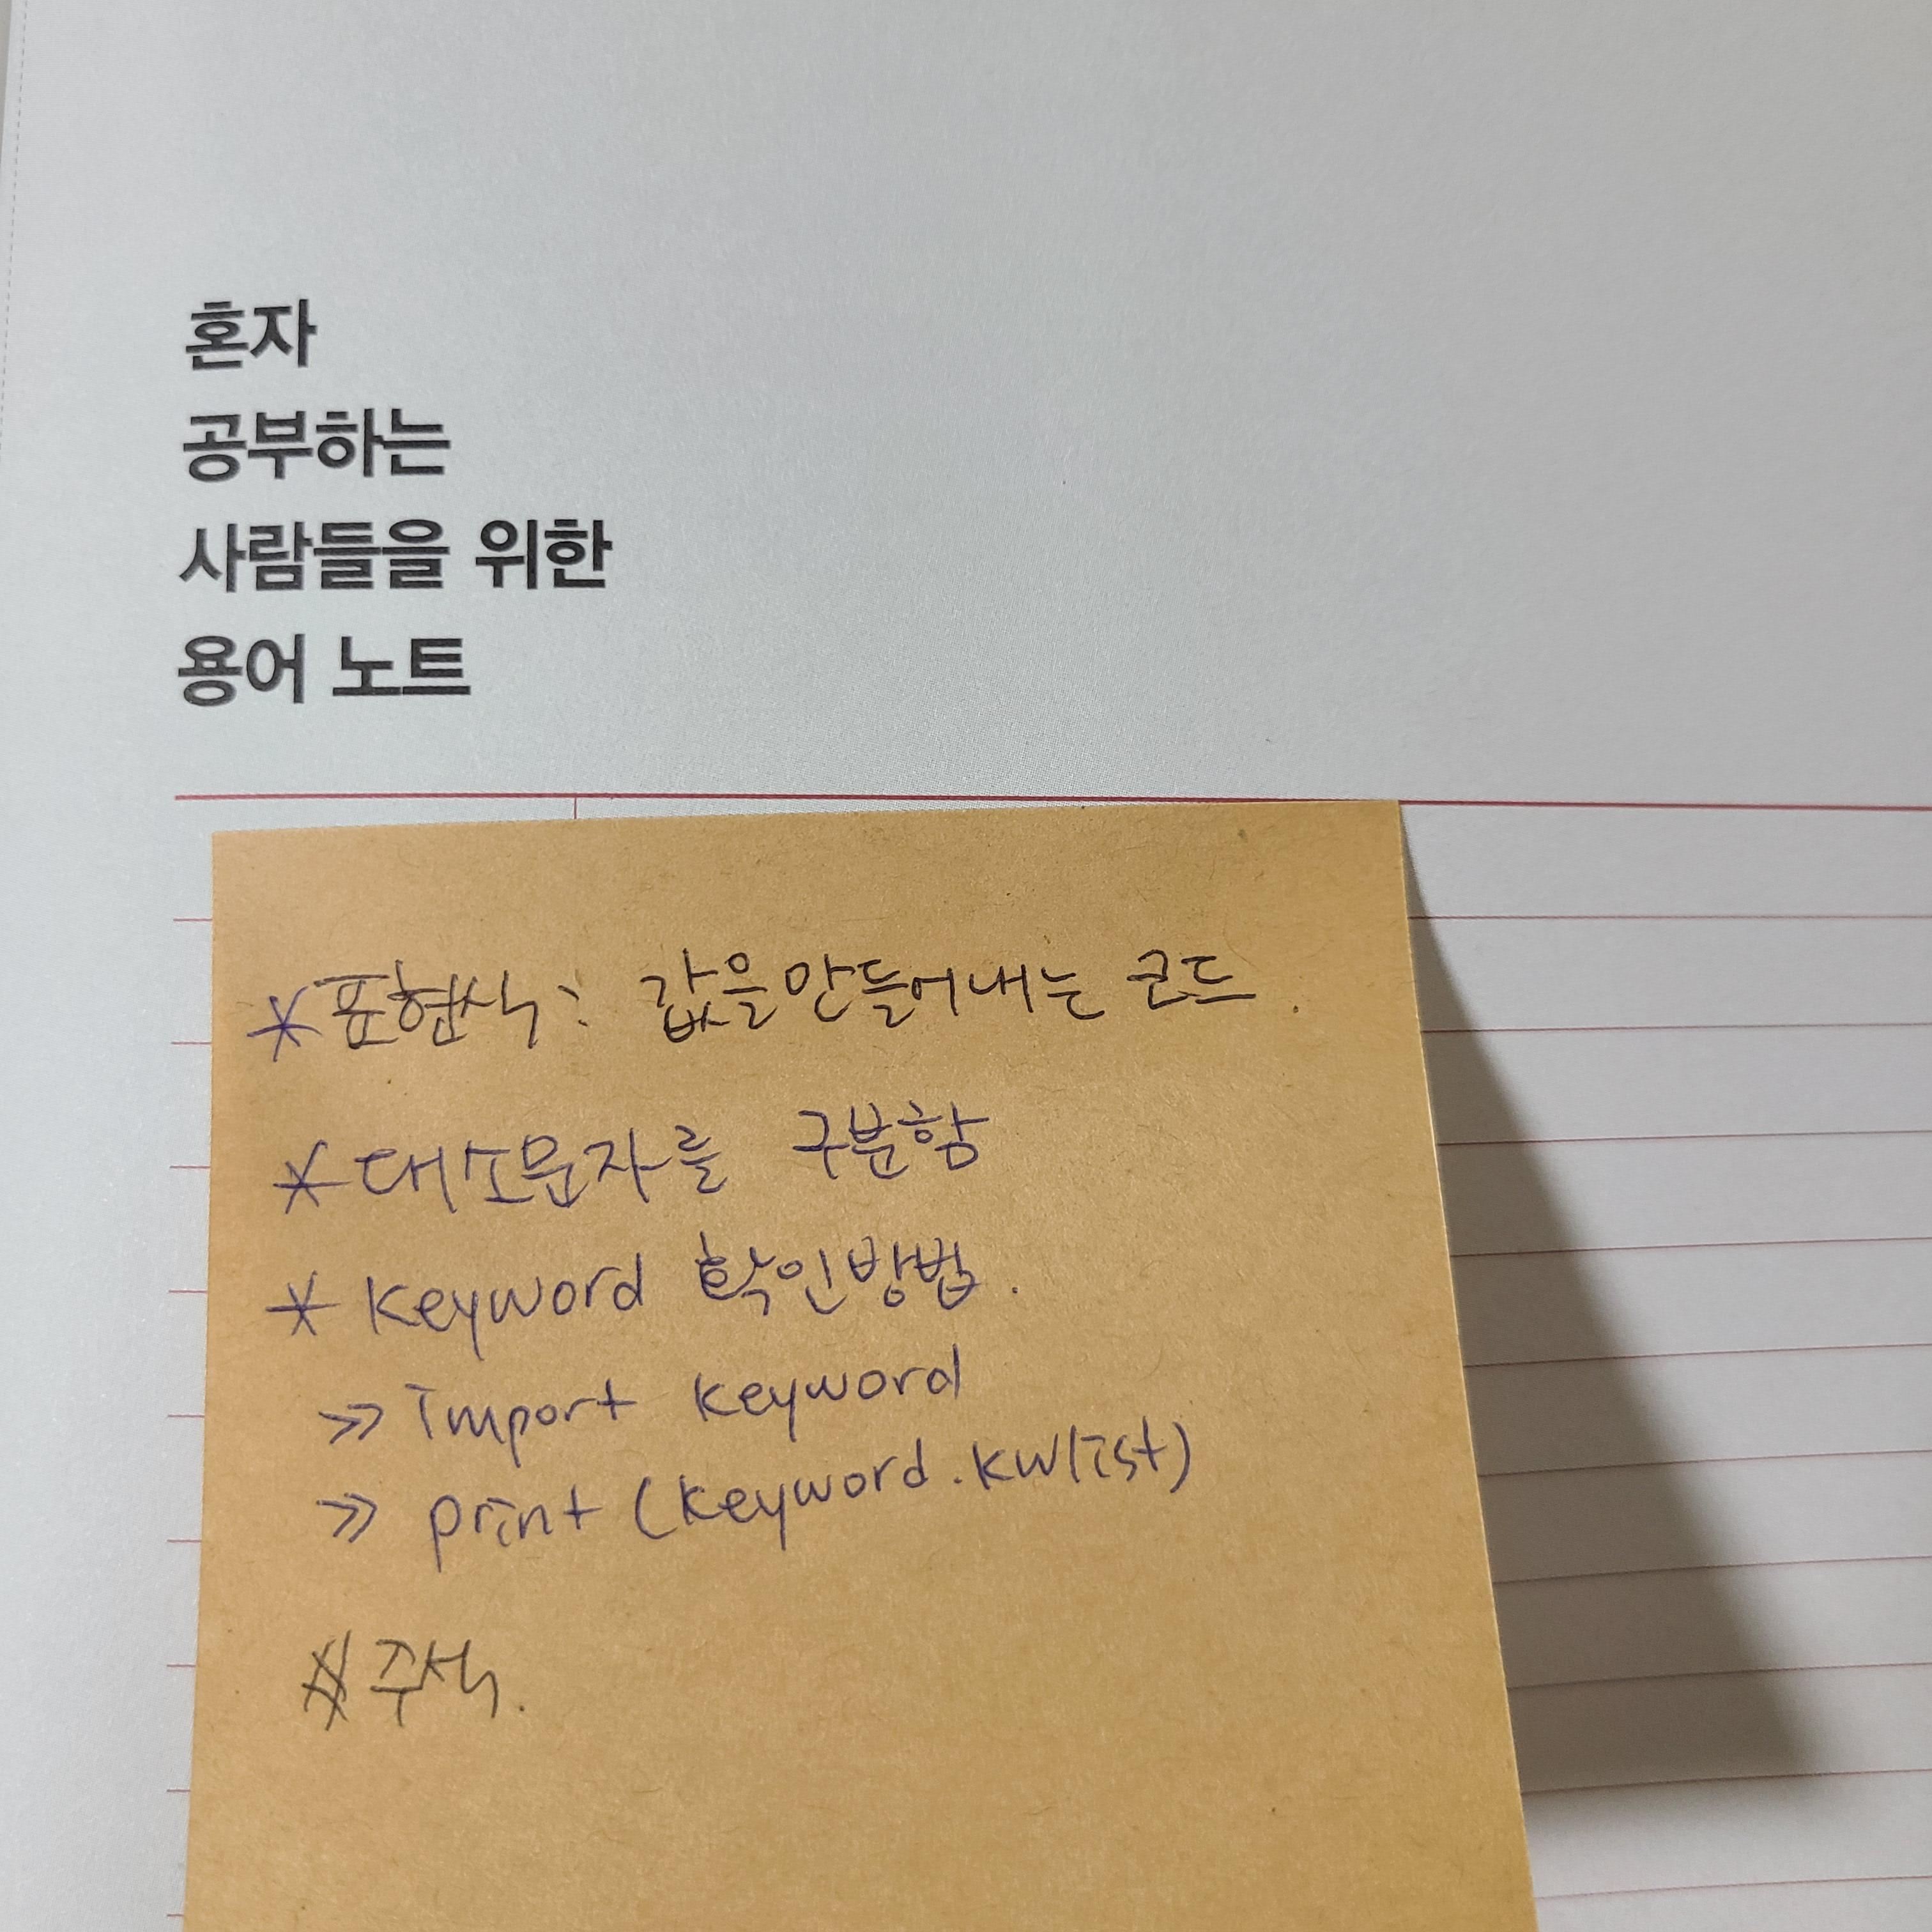 혼자
공부하는
사람들을 위한
용어 노트
* 표현식: 값을 만들어내는 코드.
* 대소문자를 구분함
* keyword 확인방법.
>> import keyword
>> print (keyword.kwlist)
# 주석.